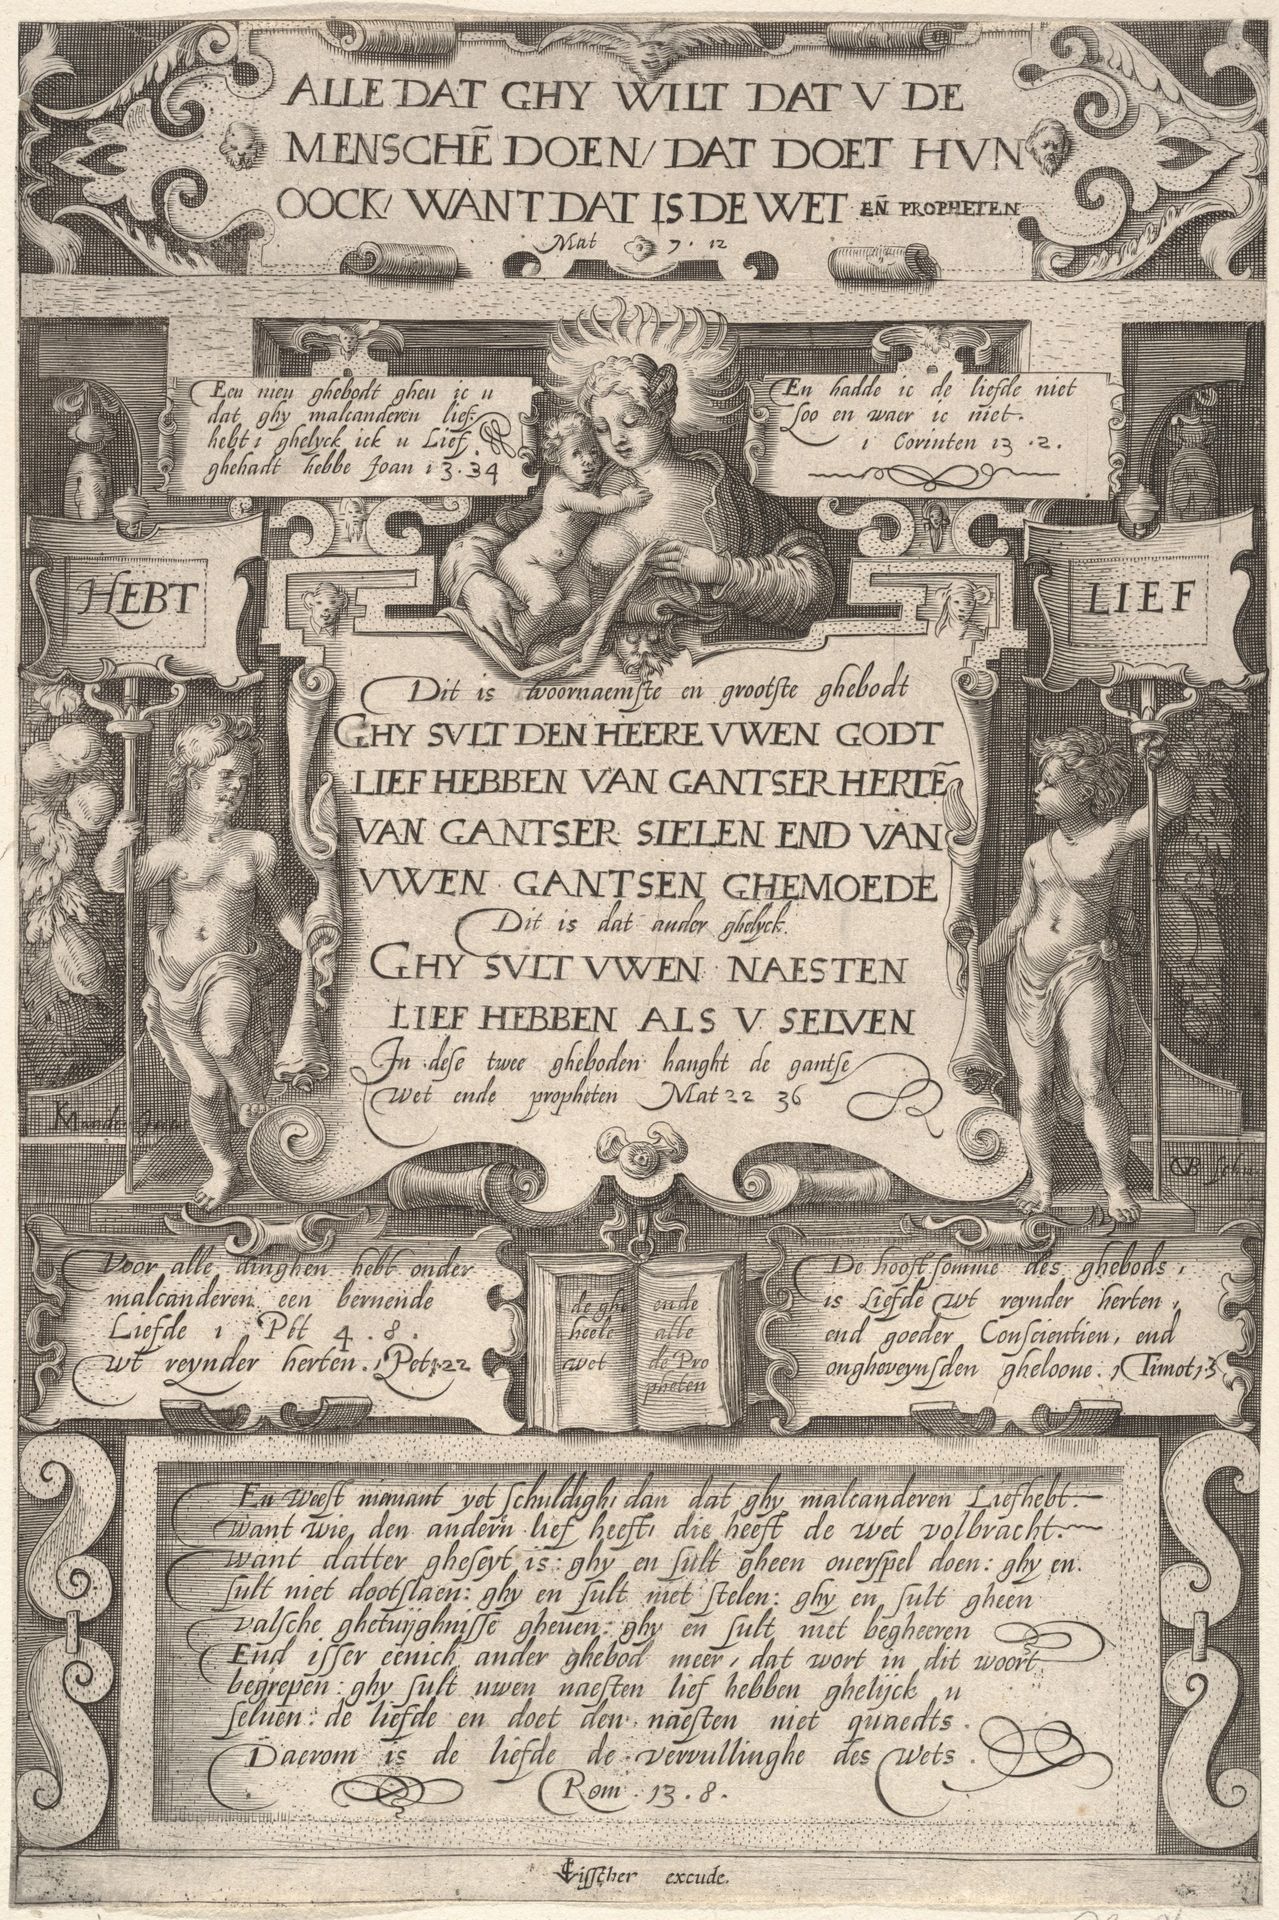 ALLE DAT GHY WILT DAT V DE
MENSCHĒ DOEN/ DAT DOET HVN
OOCK/ WANT DAT IS DE WET EÑ PROPHETEN
Mat 7. 12
Een nieu ghebodt gheu ic u
dat ghy malcanderen lief
hebt; ghelyck ick u Lief
ghehadt hebbe Joan 13.34
En hadde ic de liefde niet
soo en waer ic niet.
1 Corinten 13.2.
HEBT
LIEF
Dit is tvoornaemste en grootste ghebodt
GHY SVLT DEN HEERE VWEN GODT
LIEF HEBBEN VAN GANTSER HERTĒ
VAN GANTSER SIELEN END VAN
VWEN GANTSEN GHEMOEDE
Dit is dat ander ghelyck.
GHY SVLT VWEN NAESTEN
LIEF HEBBEN ALS V SELVEN
In dese twee gheboden hanght de gantse
wet ende propheten Mat 22 36
KMander
CVB
Voor alle dinghen hebt onder
malcanderen een bernende
Liefde 1 Pet 4.8.
wt reynder herten. 1 Pet 1.22
de ghe
heele
wet
ende
alle
de Pro
pheten
De hooft somme des ghebods,
is Liefde wt reynder herten,
end goeder Conscientien, end
ongheveynsden gheloove. 1 Timot 1.5
En weest niemant yet schuldigh, dan dat ghy malcanderen Liefhebt.
want wie den andern lief heeft, die heeft de wet volbracht.
want datter gheseyt is: ghy en sult gheen overspel doen: ghy en
sult niet dootslaen: ghy en sult niet stelen: ghy en sult gheen
valsche ghetuijghnisse gheuen: ghy en sult niet begheeren
End isser eenich ander ghebod meer, dat wort in dit woort
begrepen: ghy sult uwen naesten lief hebben ghelijck u
seluen: de liefde en doet den naesten niet quaedts.
Daerom is de liefde de vervullinghe des wets.
Rom. 13.8.
CVisscher excude.